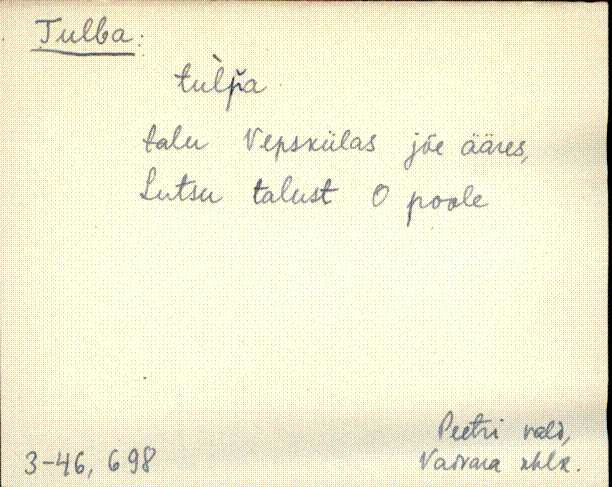 Tulba:
tul̀p̆a
talu Vepskülas jõe ääres,
Lutsu talust O poole
Peetri vald,
3-46, 698
Vaivara khlk.